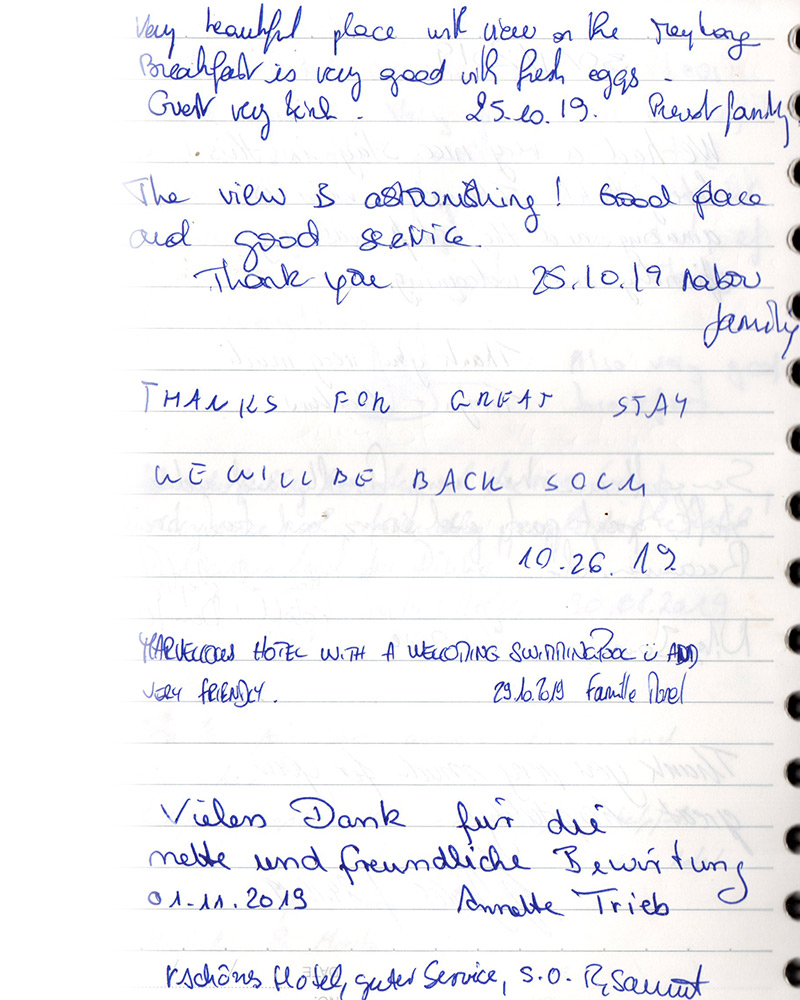 Very beautiful place with view on the Meykong
Breakfast is very good with fresh eggs.
Guest very kind. 25.10.19. family
The view is astounishing! Good place
and good service.
Thank you 25.10.19 Nabou
family
THANKS FOR GREAT STAY
WE WILL BE BACK SOON
10.26.19
MARVELLOUS HOTEL WITH A WELCOMING SWIMMINGPOOL ü AND
VERY FRIENDLY. 29.10.2019 Famille
Vielen Dank für die
nette und freundliche Bewirtung
01.11.2019 Annette Trieb
schönes Hotel, guter Service, s.o.